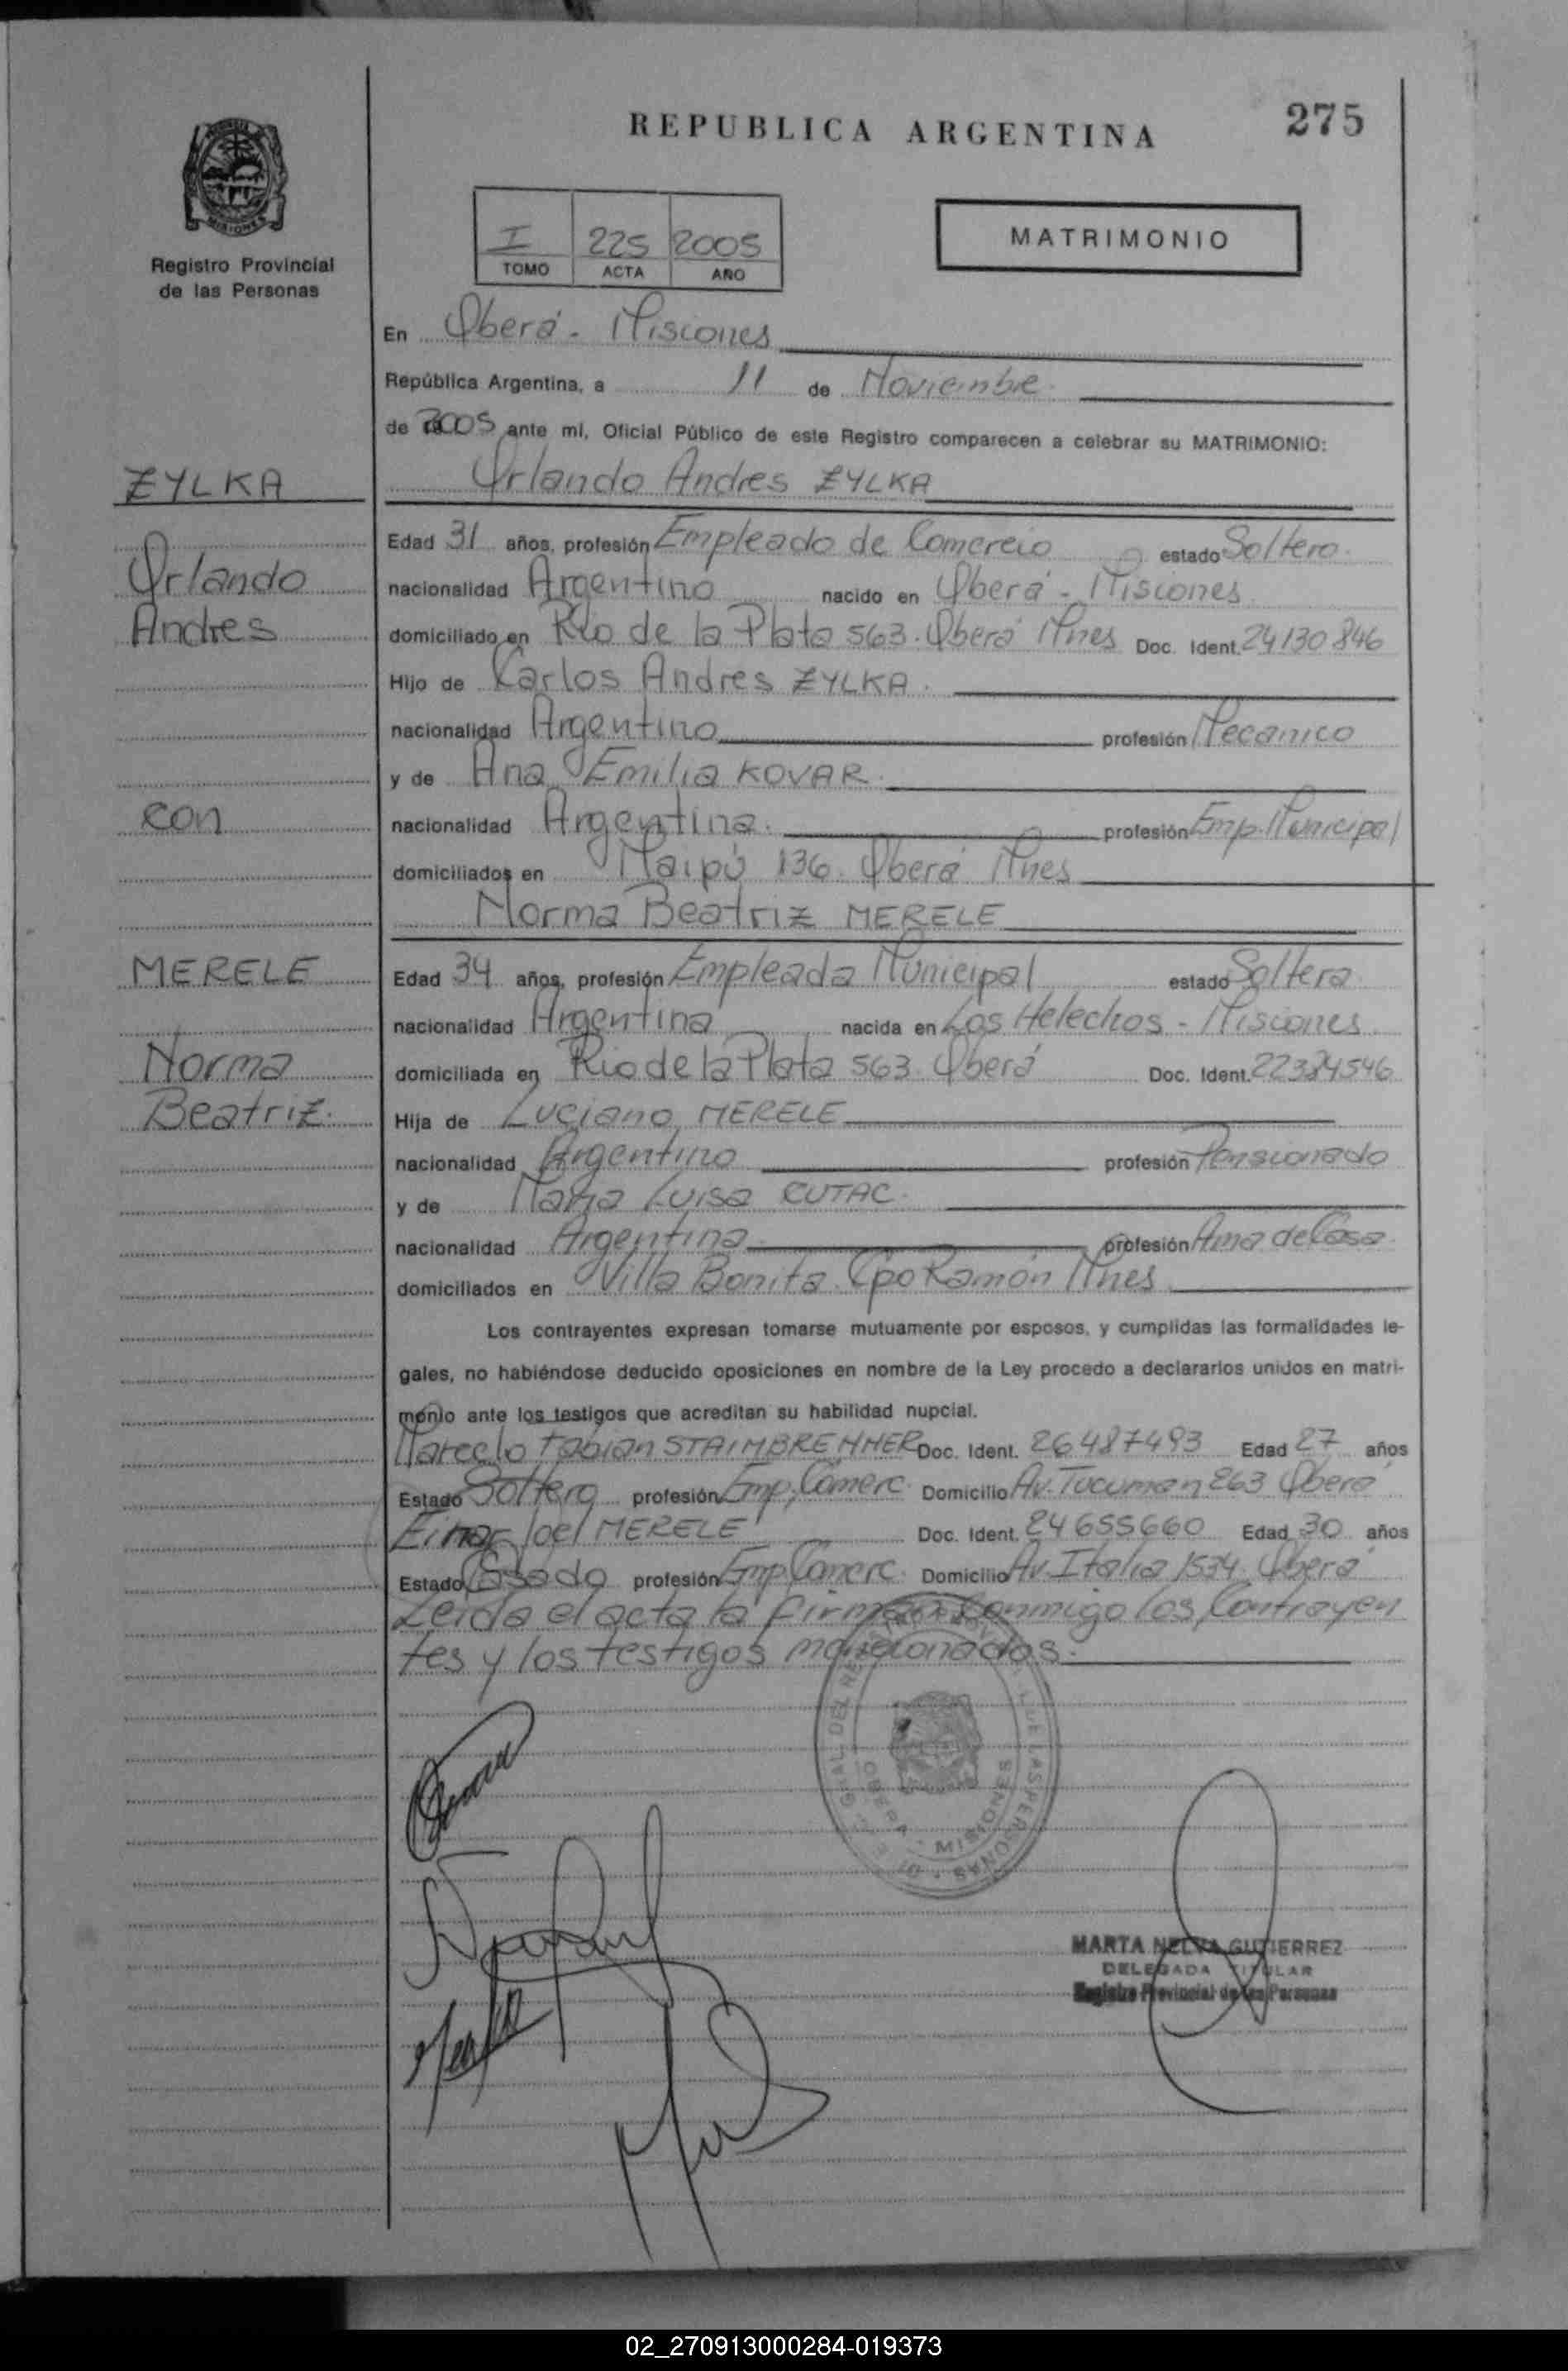 REPUBLICA ARGENTINA
275
MISIONES
Registro Provincial
de las Personas
I 225 2005
TOMO ACTA AÑO
MATRIMONIO
En Oberá - Misiones
República Argentina, a 11 de Noviembre
de 2005 ante mí, Oficial Público de este Registro comparecen a celebrar su MATRIMONIO:
ZYLKA
Orlando Andres ZYLKA
Edad 31 años, profesión Empleado de Comercio estado Soltero.
Orlando
nacionalidad Argentino nacido en Oberá - Misiones
Andres
domiciliado en Río de la Plata 563. Oberá Mnes Doc. Ident. 24130846
Hijo de Carlos Andres ZYLKA.
nacionalidad Argentino profesión Mecanico
y de Ana Emilia KOVAR.
con
nacionalidad Argentina. profesión Emp. Municipal
domiciliados en Maipú 136. Oberá Mnes
Norma Beatriz MERELE
MERELE
Edad 34 años, profesión Empleada Municipal estado Soltera
nacionalidad Argentina nacida en Los Helechos - Misiones
Norma
domiciliada en Rio de la Plata 563. Oberá Doc. Ident. 22384546
Beatriz.
Hija de Luciano MERELE
nacionalidad Argentino profesión Pensionado
y de Maria Luisa CUTAC.
nacionalidad Argentina profesión Ama de Casa
domiciliados en Villa Bonita. Cpo Ramón Mnes
Los contrayentes expresan tomarse mutuamente por esposos, y cumplidas las formalidades le-
gales, no habiéndose deducido oposiciones en nombre de la Ley procedo a declararlos unidos en matri-
monio ante los testigos que acreditan su habilidad nupcial.
Marcelo Fabian STAIMBRENNER Doc. Ident. 26487493 Edad 27 años
Estado Soltero profesión Emp. Comerc. Domicilio Av. Tucuman 263 Oberá
Einar Joel MERELE Doc. Ident. 24655660 Edad 30 años
Estado Casado profesión Emp Comerc. Domicilio Av. Italia 1534. Oberá
Leida el acta la firman conmigo los Contrayen
tes y los testigos mencionados.
OBERA - MISIONES
MARTA NELVA GUTIERREZ
DELEGADA TITULAR
Registro Provincial de las Personas
02_270913000284-019373